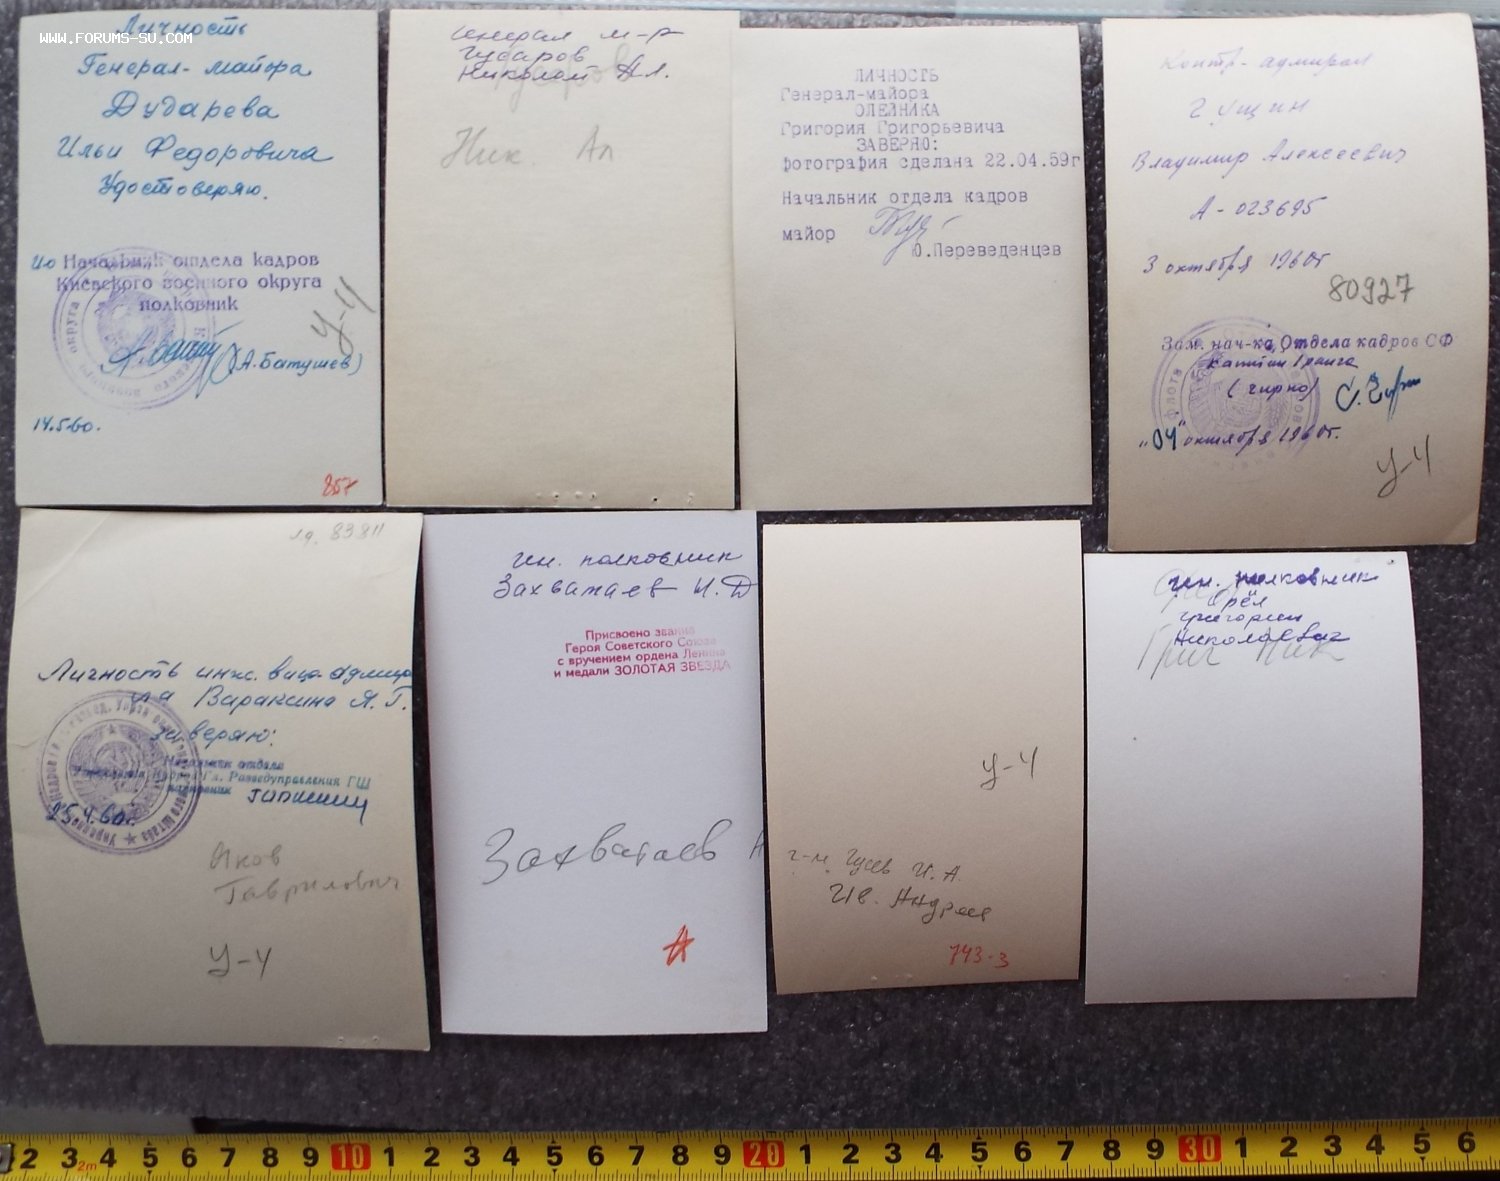 www.forums-su.com
Личность
Генерал-майора
Дударева
Ильи Федоровича
Удостоверяю.
Начальник отдела кадров
Киевского военного округа
полковник
(А.Батушев)
14.5.60.
У-4
857
генерал м-р
Гусаров
Николай Ал.
Ник. Ал
ЛИЧНОСТЬ
Генерал-майора
ОЛЕЙНИКА
Григория Григорьевича
ЗАВЕРЯЮ:
фотография сделана 22.04.59г
Начальник отдела кадров
майор
Ю.Переведенцев
Контр-адмирал
Гущин
Владимир Алексеевич
А-023695
3 октября 1960г
80927
Зам. нач-ка Отдела кадров СФ
капитан 1 ранга
"04" октября 1960г.
У-4
83811
Личность инж. вице адмира
ла Вараксина Я. Г.
заверяю:
Начальник отдела
Управления кадров Гл. Разведуправления ГШ
полковник
25.4.60г.
Яков
Гаврилович
У-4
ген. полковник
Захватаев Н. Д
Присвоено звание
Героя Советского Союза
с вручением ордена Ленина
и медали ЗОЛОТАЯ ЗВЕЗДА
Захватаев Н
У-4
г-м. Гусев И. А.
Ив. Андреев
743-3
ген. полковник
Орёл
Григорий
Николаевич
Григ Ник
2 3 2m 4 5 6 7 8 9 10 1 2 3 4 5 6 7 8 9 20 1 2 3 4 5 6 7 8 9 30 1 2 3 4 5 6